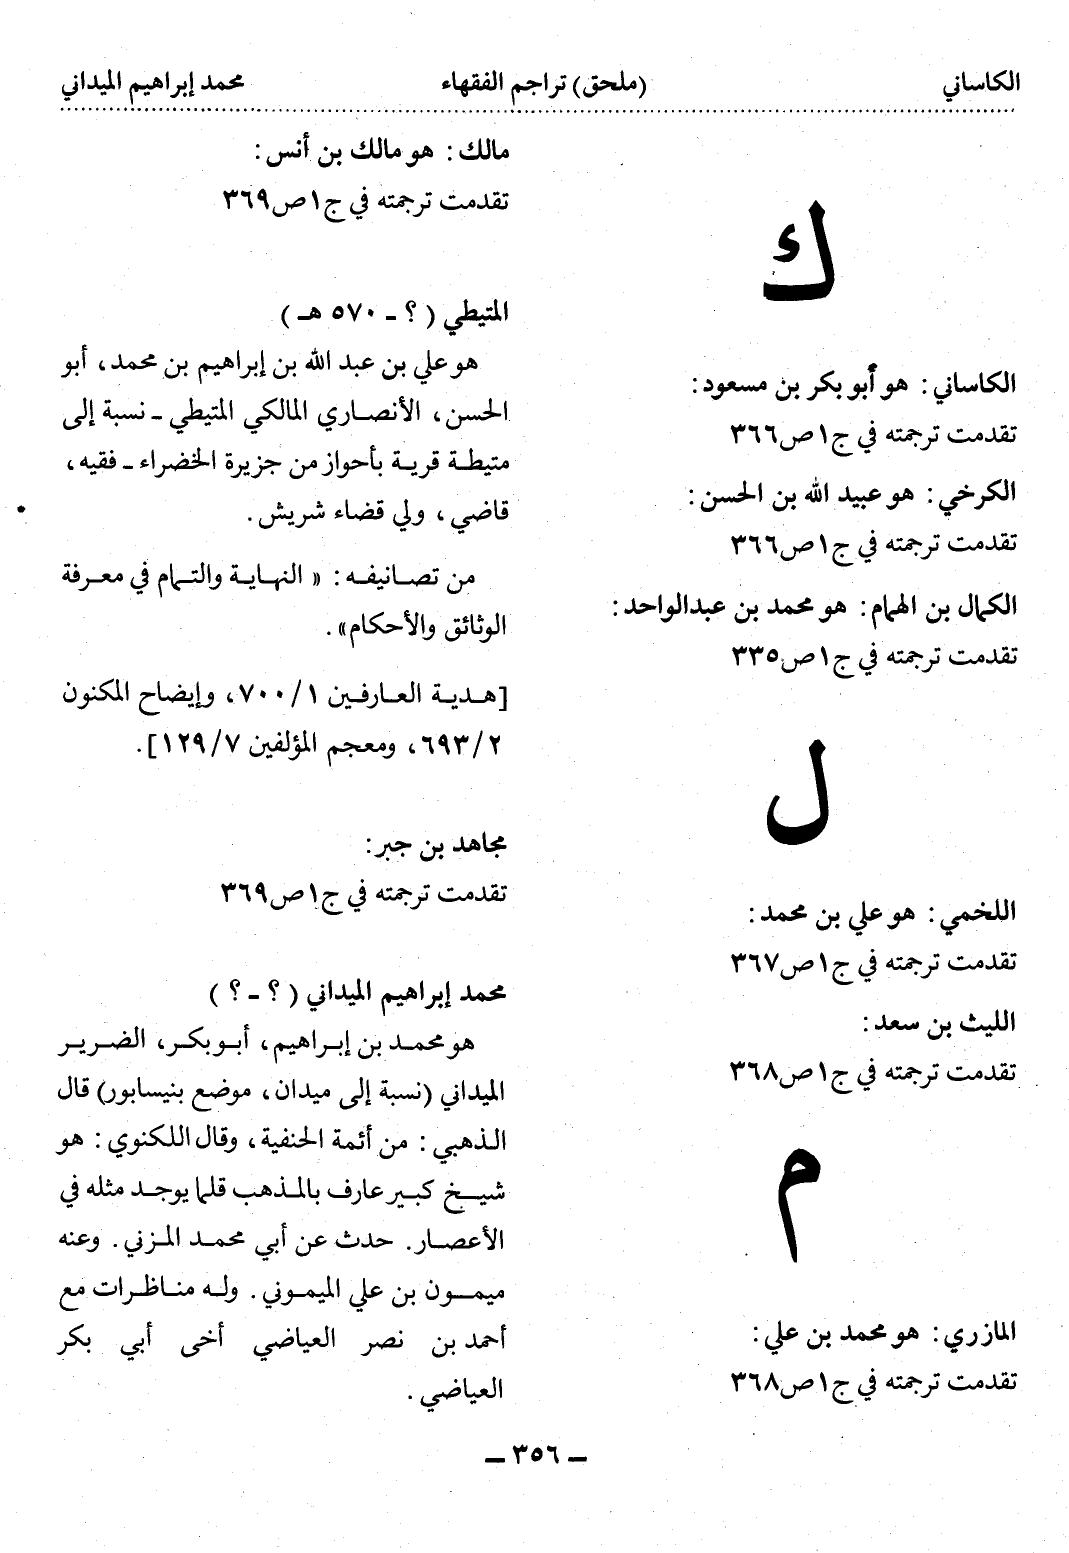 الكاساني (ملحق) تراجم الفقهاء محمد إبراهيم الميداني
ك
الكاساني : هو أبو بكر بن مسعود:
تقدمت ترجمته في ج١ ص٣٦٦
الكرخي : هو عبيد الله بن الحسن:
تقدمت ترجمته في ج١ ص٣٦٦
الكمال بن الهمام: هو محمد بن عبدالواحد:
تقدمت ترجمته في ج١ ص٣٣٥
ل
اللخمي : هو علي بن محمد:
تقدمت ترجمته في ج١ ص٣٦٧
الليث بن سعد:
تقدمت ترجمته في ج١ ص٣٦٨
م
المازري: هو محمد بن علي:
تقدمت ترجمته في ج١ ص٣٦٨
مالك : هو مالك بن أنس:
تقدمت ترجمته في ج١ ص٣٦٩
المتيطي ( ؟ ـ ٥٧٠ هـ )
هو علي بن عبد الله بن إبراهيم بن محمد، أبو
الحسن، الأنصاري المالكي المتيطي ـ نسبة إلى
متيطة قرية بأحواز من جزيرة الخضراء ـ فقيه،
قاضي، ولي قضاء شريش.
من تصانيفه: « النهاية والتمام في معرفة
الوثائق والأحكام».
[هدية العارفين ١/ ٧٠٠، وإيضاح المكنون
٢/ ٦٩٣، ومعجم المؤلفين ٧/ ١٢٩].
مجاهد بن جبر:
تقدمت ترجمته في ج١ ص٣٦٩
محمد إبراهيم الميداني ( ؟ ـ ؟ )
هو محمد بن إبراهيم، أبوبكر، الضرير
الميداني (نسبة إلى ميدان، موضع بنيسابور) قال
الذهبي : من أئمة الحنفية، وقال اللكنوي: هو
شيخ كبير عارف بالمذهب قلما يوجد مثله في
الأعصار. حدث عن أبي محمد المزني. وعنه
ميمون بن علي الميموني. وله مناظرات مع
أحمد بن نصر العياضي أخى أبي بكر
العياضي.
ـ ٣٥٦ ـ